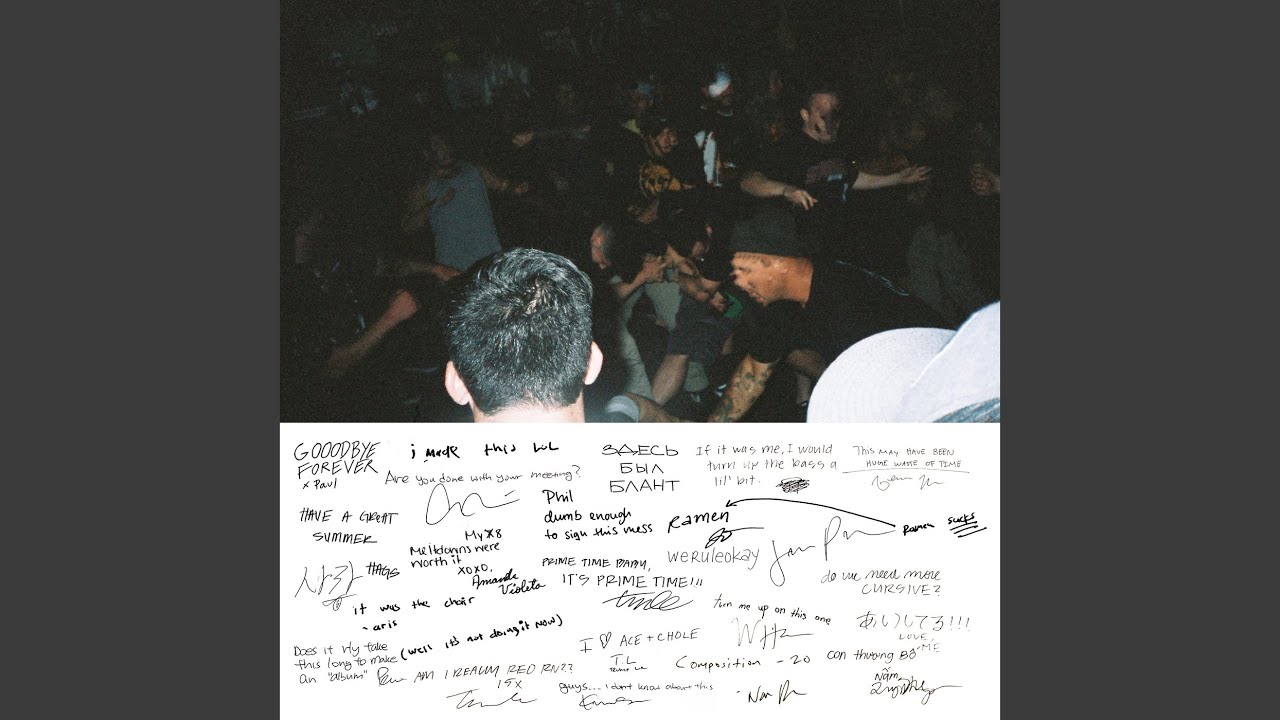 GOOODBYE
FOREVER
x Paul
i made this lol
Are you done with your meeting?
ЗДЕСЬ
БЫЛ
БЛАНТ
If it was me, I would
turn up the bass a
lil' bit.
THIS MAY HAVE BEEN
HUGE WASTE OF TIME
HAVE A GREAT
SUMMER
Phil
dumb enough
to sign this mess
Ramen
Ramen sucks
My X8
Meltdowns were
worth it
xoxo,
Amanda
Violeta
weruleokay
사랑
HAGS
PRIME TIME BABY,
IT'S PRIME TIME!!!
do we need more
CURSIVE?
it was the chair
- aris
(well it's not doing it now)
turn me up on this one
LOVE,
ME
Does it rly take
this long to make
an "album"
I ♡ ACE + CHOLE
T.L
Composition - 20
con thương Bố
AM I REALLY RED RN??
15x
guys... I dont know about this
Năm